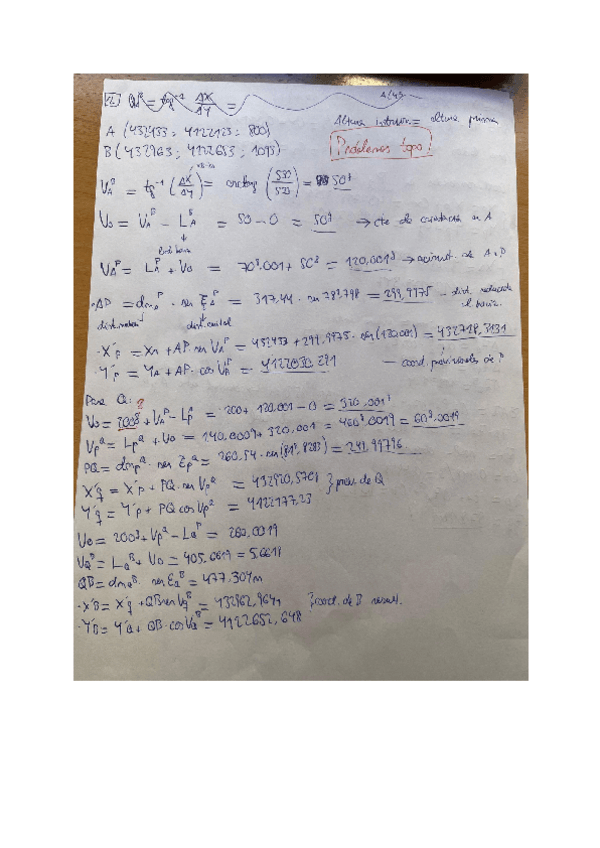 ΔX/ΔY =
Altura instrum = altura prisma
A (432433 ; 4122123 : 800)
Problemas topo
B (432963 ; 4122653 ; 1095)
V_A^B = tg⁻¹ (ΔX/ΔY) = arctag (530/530) = 50ᵍ
V_o = V_A^B − L_A^B = 50 − 0 = 50ᵍ → cte de orientación en A
V_A^P = L_A^P + V_o = 70ᵍ.001 + 50ᵍ = 120,001ᵍ → acimut de A a P
· AP = dm_A^P · sen ξ_A^P = 317,44 · sen = 299,9975 – dist. reducida
dist.
al horiz.
· X'p = X_A + AP · sen V_A^P = 432433 + 299,9975 · sen (120.001) = 432718,3131
· Y'p = Y_A + AP · cos V_A^P = 4122030,291 – coord. provisionales de P
Para Q:
V_o = 200ᵍ + V_A^P − L_P^A = 200 + 120,001 − 0 = 320,001ᵍ
V_P^Q = L_P^Q + V_o = 140,0009 + 320,001 = 460ᵍ.0019 = 60ᵍ,0019
PQ = dm_P^Q · sen ξ_P^Q = 260,54 · sen (81ᵍ,8283) = 249,99796
X'q = X'p + PQ · sen V_P^Q = 432920,5701 } prov. de Q
Y'q = Y'p + PQ cos V_P^Q = 4122177,23
V_o = 200ᵍ + V_P^Q − L_Q^P = 260,0019
V_Q^B = L_Q^B + V_o = 405,6619 = 5,6619
QB = dm_Q^B · sen ξ_Q^B = 477.304m
· X'B = X'q + QB sen V_Q^B = 432962,964 } coord. de B
· Y'B = Y'q + QB · cos V_Q^B = 4122652,648